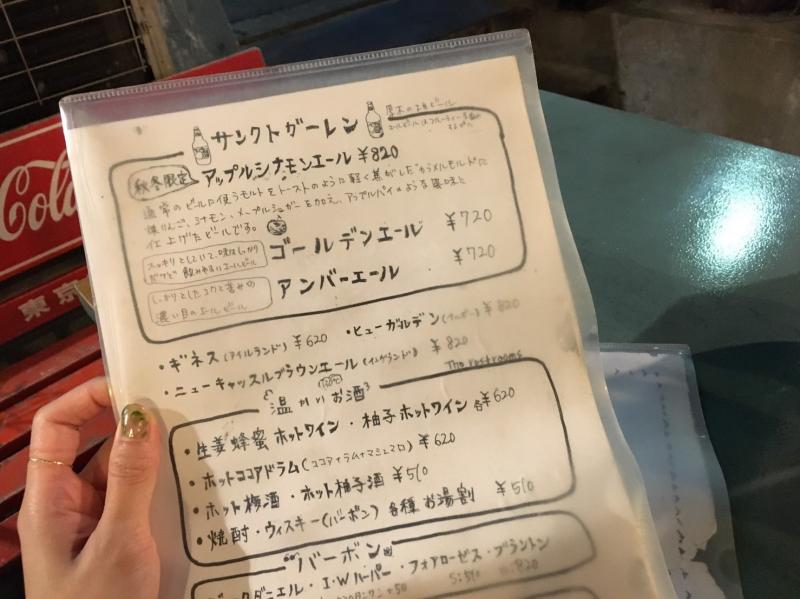 Cola
東京
サンクトガーレン
厚木の地ビール
秋冬限定
アップルシナモンエール ¥820
通常のビールに使うモルトをトーストのように軽く焦がしたカラメルモルトに
焼りんご、シナモン、メープルシュガーを加え、アップルパイのような風味に
仕上げたビールです。
ゴールデンエール ¥720
スッキリとしていて、味はしっかり
だけど飲みやすいエールビール
アンバーエール ¥720
しっかりとしたコクと苦みの
濃い目のエールビール
・ギネス(アイルランド) ¥620 ・ヒューガルデン(ベルギー) ¥820
・ニューキャッスルブラウンエール(イングランド) ¥820
The restrooms
温かいお酒
・生姜蜂蜜ホットワイン・柚子ホットワイン 各¥620
・ホットココアドラム(ココア+ラム+マシュマロ) ¥620
・ホット梅酒・ホット柚子酒 ¥510
・焼酎・ウィスキー(バーボン) 各種お湯割 ¥510
バーボン
ジャックダニエル・I.Wハーパー・フォアローゼス・ブラントン
S:510 :820